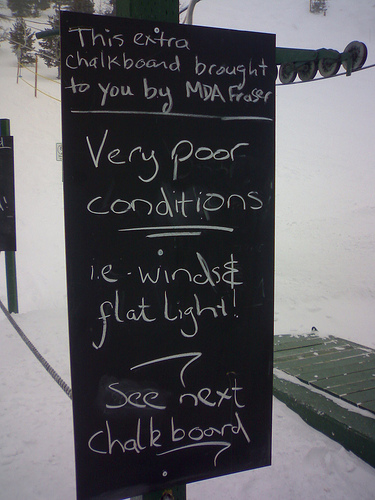 This extra
chalkboard brought
to you by MDA Fraser
Very poor
conditions
i.e - winds &
flat light!
See next
chalkboard